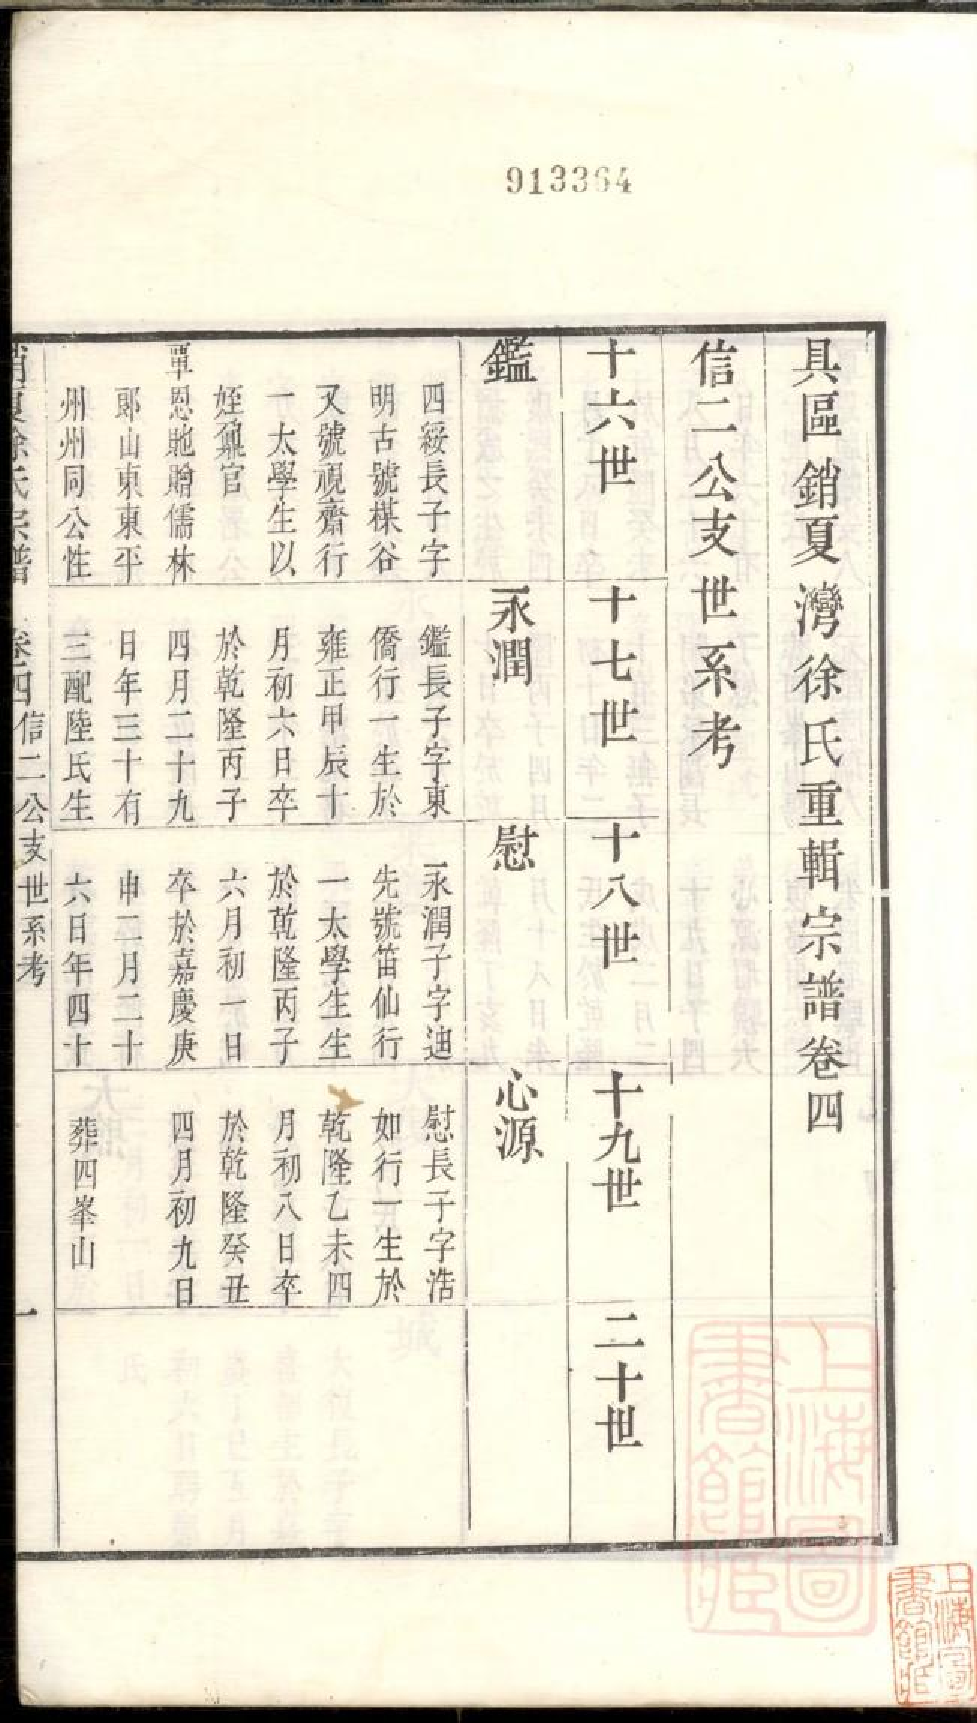 913364
具區銷夏灣徐氏重輯宗譜卷四
信二公支世系考
十六世
十七世
十八世
十九世
二十世
鑑
永潤
慰
心源
四綏長子字
明古號楳谷
又號視齋行
一太學生以
姪鼐官
覃恩貤贈儒林
郎山東東平
州州同公性
鑑長子字東
僑行一生於
雍正甲辰十
月初六日卒
於乾隆丙子
四月二十九
日年三十有
三配陸氏生
永潤子字迪
先號笛仙行
一太學生生
於乾隆丙子
六月初一日
卒於嘉慶庚
申二月二十
六日年四十
慰長子字浩
如行一生於
乾隆乙未四
月初八日卒
於乾隆癸丑
四月初九日
葬四峯山
銷夏徐氏宗譜 卷四 信二公支世系考 一
上海圖書館藏
上海圖書館藏